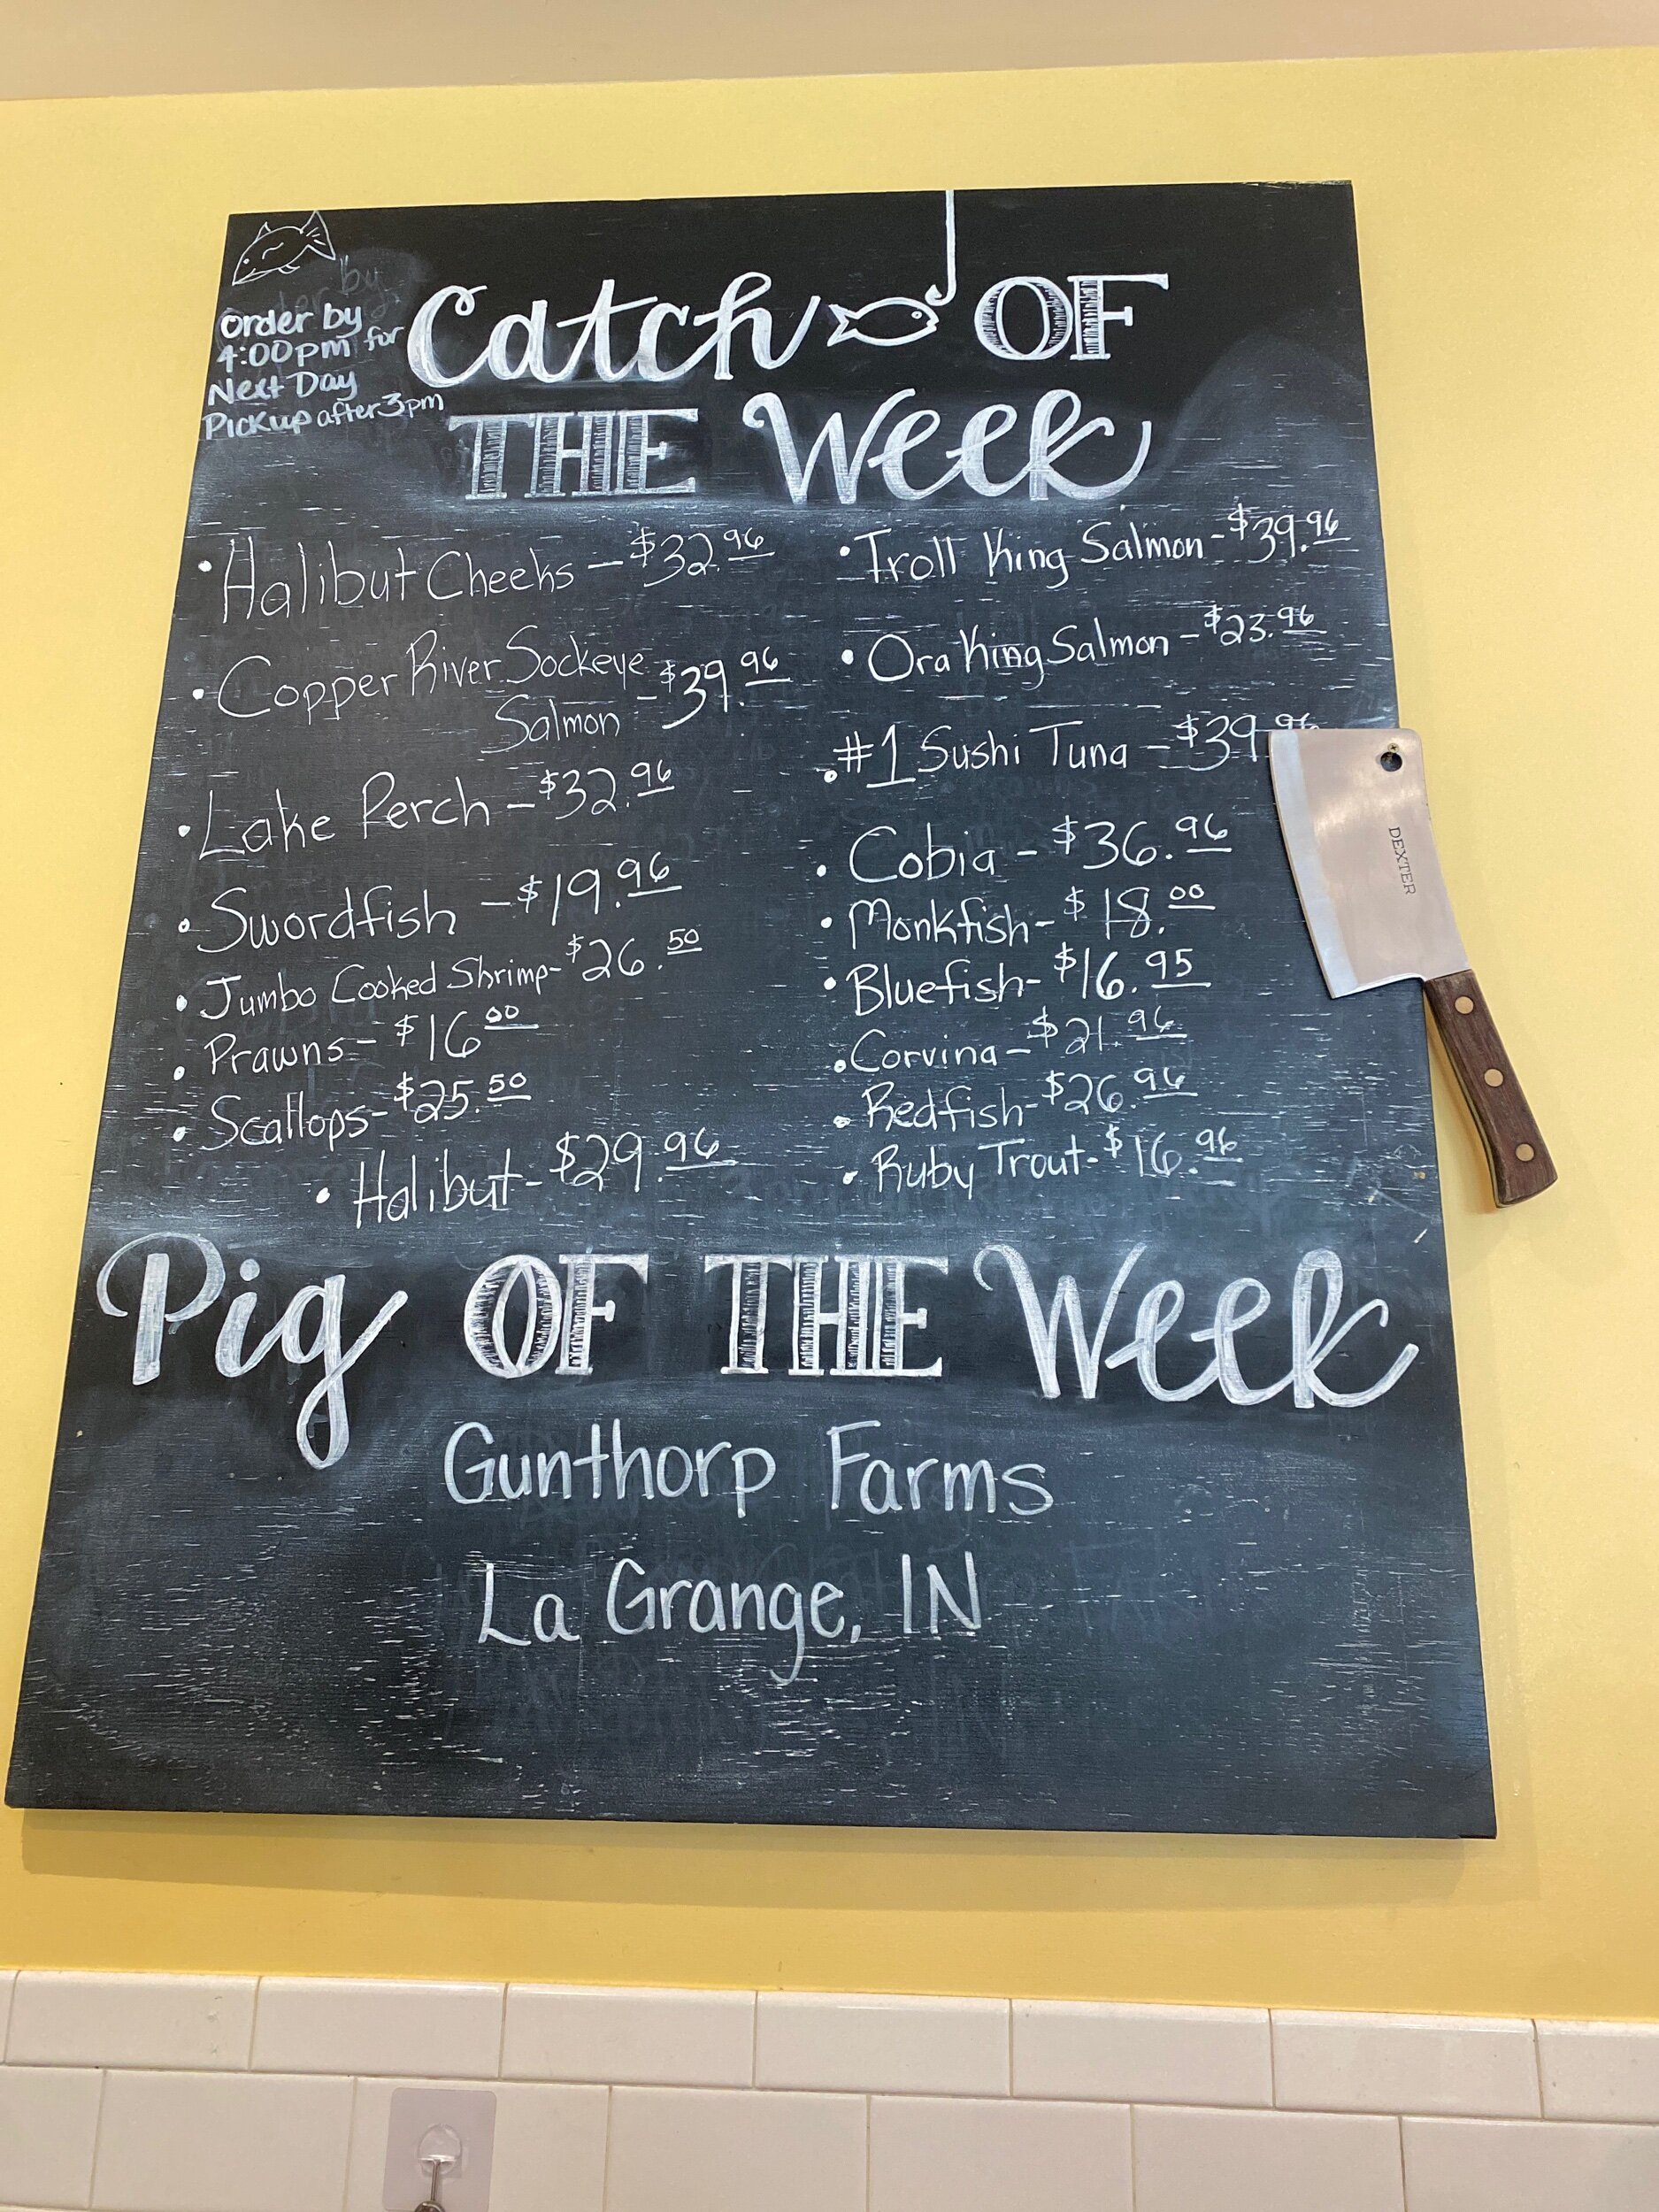 Order by
4:00pm for
Next Day
Pickup after 3pm
Catch OF
THE Week
• Halibut Cheeks - $32.96
• Copper River Sockeye
Salmon - $39.96
• Lake Perch - $32.96
• Swordfish - $19.96
• Jumbo Cooked Shrimp - $26.50
• Prawns - $16.00
• Scallops - $25.50
• Halibut - $29.96
• Troll King Salmon - $39.96
• Ora King Salmon - $23.96
• #1 Sushi Tuna - $39.96
• Cobia - $36.96
• Monkfish - $18.00
• Bluefish - $16.95
• Corvina - $21.96
• Redfish - $26.96
• Ruby Trout - $16.96
DEXTER
Pig OF THE Week
Gunthorp Farms
La Grange, IN